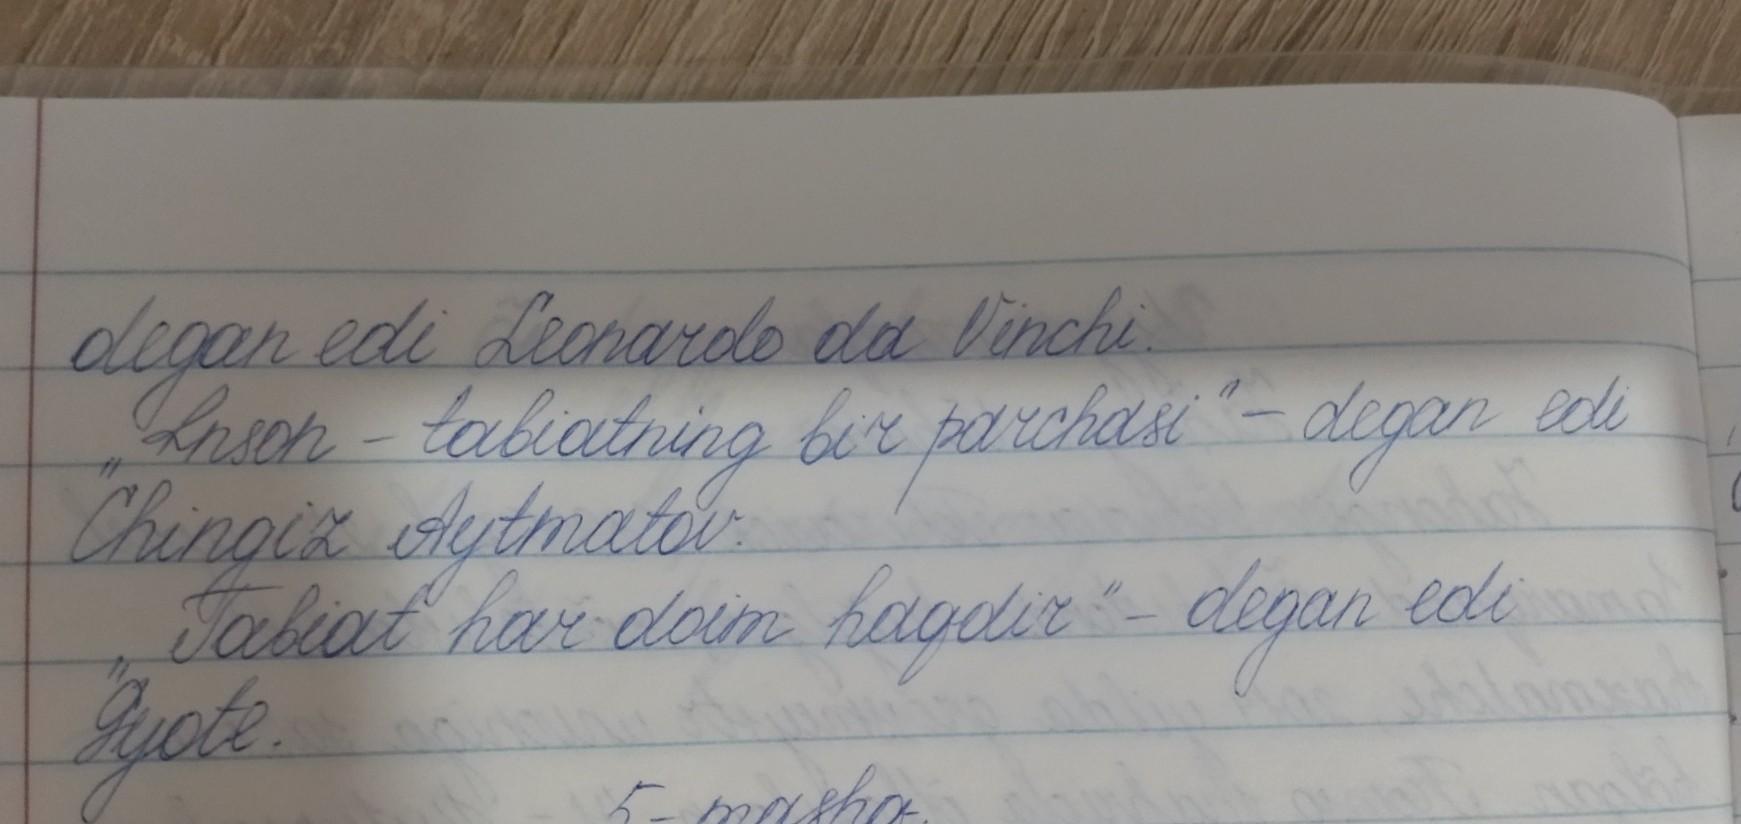 degan edi Leonardo da Vinchi.
„Inson - tabiatning bir parchasi" - degan edi
Chingiz Aytmatov.
„Tabiat har doim haqdir" - degan edi
Gyote.
5-mashq.